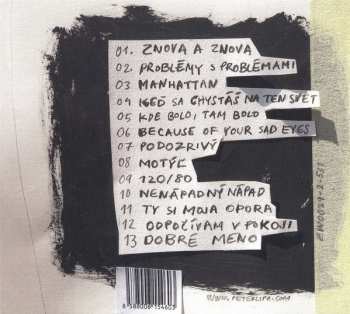 01. ZNOVA A ZNOVA
02. PROBLÉMY S PROBLÉMAMI
03 MANHATTAN
04 KEĎ SA CHYSTÁŠ NA TEN SVET
05 KDE BOLO, TAM BOLO
06 BECAUSE OF YOUR SAD EYES
07 PODOZRIVÝ
08 MOTÝĽ
09 120/80
10 NENÁPADNÝ NÁPAD
11 TY SI MOJA OPORA
12 ODPOČÍVAM V POKOJI
13 DOBRÉ MENO
WWW.PETERLIPA.COM